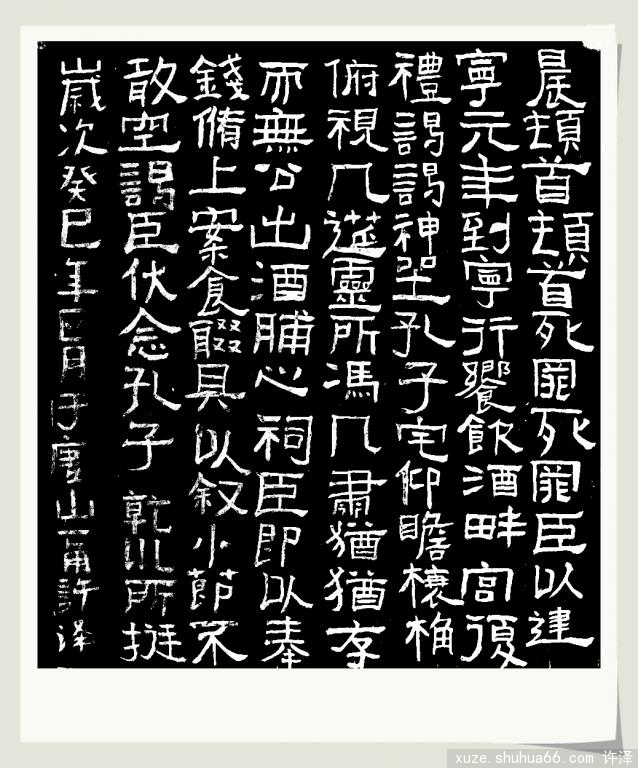 晨頓首頓首死罪死罪臣以建
寧元年到寧行饗飲酒畔宮復
禮謁謁神坐孔子宅仰瞻榱桷
俯視几筵靈所馮几肅猶猶存
而無公出酒脯之祠臣即以奉
錢脩上案食醊具以叙小節不
敢空謁臣伏念孔子乾川所挺
歲次癸巳年四月于唐山許泽
xuze.shuhua66.com 许泽